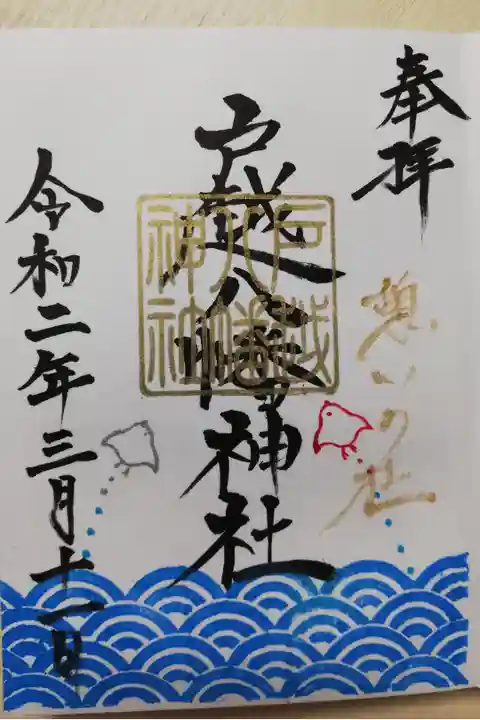 奉拝
想いの社
戸越八幡神社
戸越
八幡
神社
令和二年三月十一日